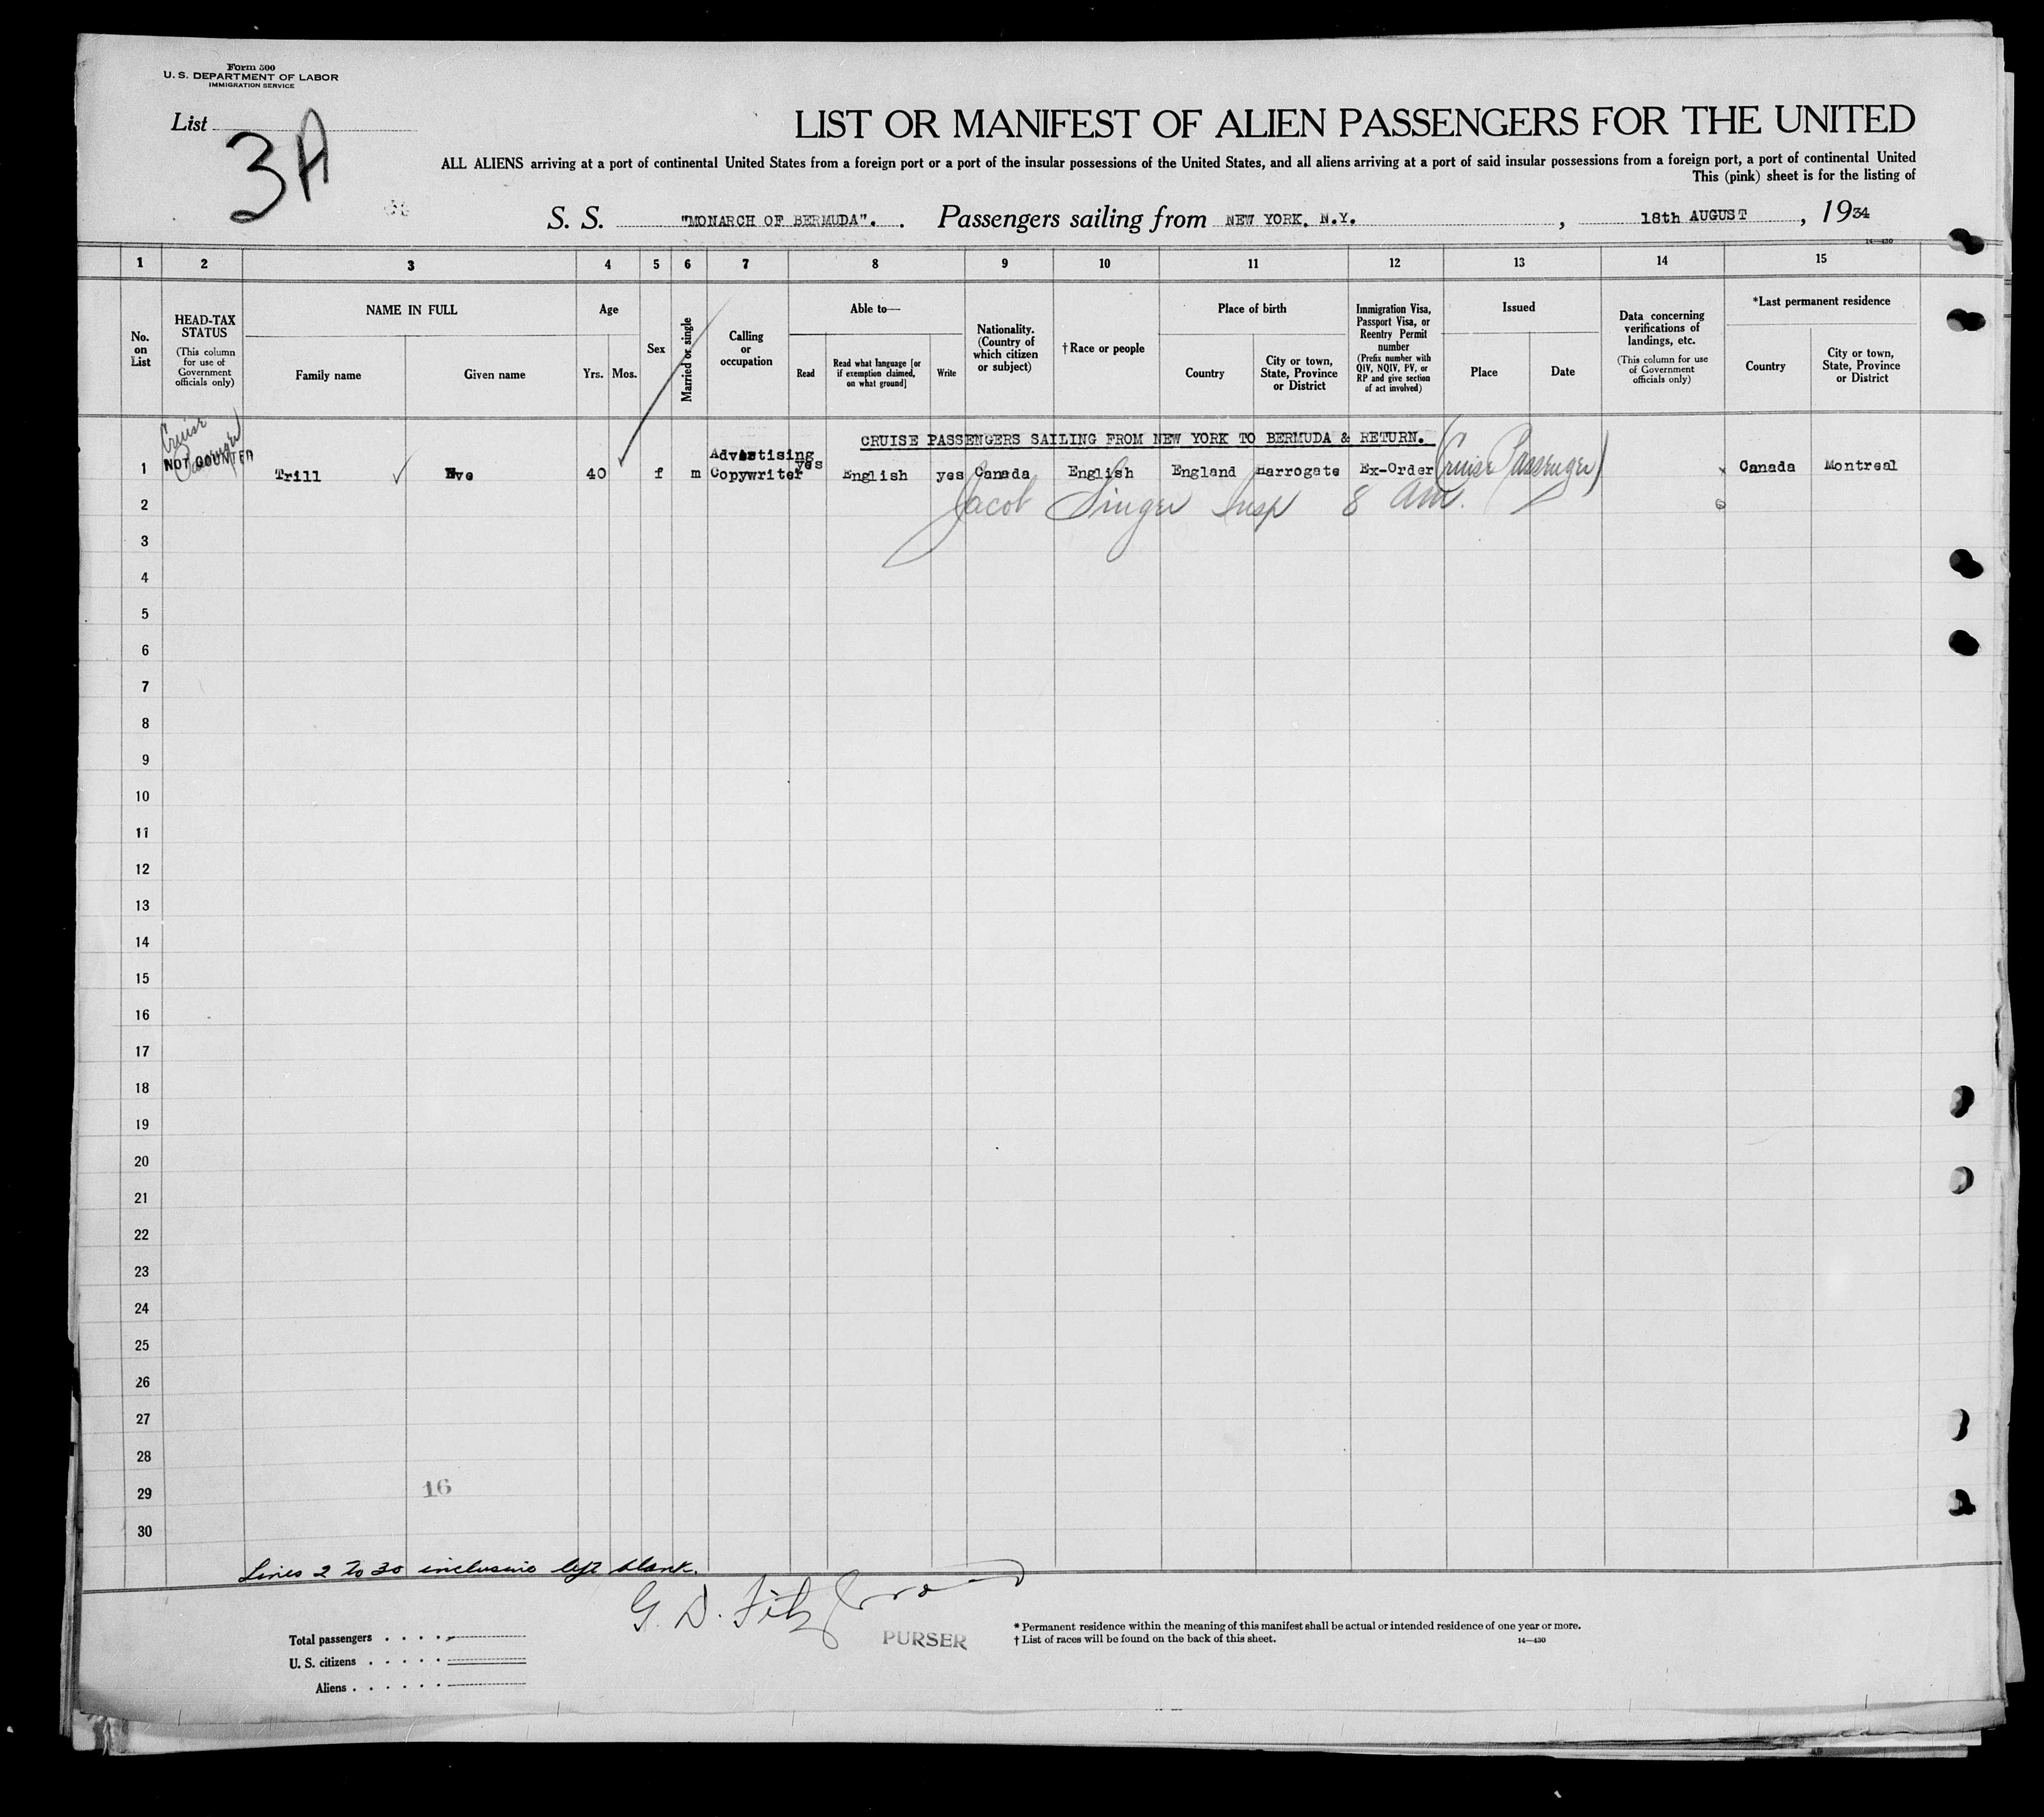 Form 500
U. S. DEPARTMENT OF LABOR
IMMIGRATION SERVICE
List 3A
LIST OR MANIFEST OF ALIEN PASSENGERS FOR THE UNITED
ALL ALIENS arriving at a port of continental United States from a foreign port or a port of the insular possessions of the United States, and all aliens arriving at a port of said insular possessions from a foreign port, a port of continental United
This (pink) sheet is for the listing of
S. S. "MONARCH OF BERMUDA". . Passengers sailing from NEW YORK, N.Y. , 18th AUGUST , 1934
14—430
1 2 3 4 5 6 7 8 9 10 11 12 13 14 15
No. on List
HEAD-TAX STATUS (This column for use of Government officials only)
NAME IN FULL
Family name
Given name
Age
Yrs. Mos.
Sex
Married or single
Calling or occupation
Able to—
Read
Read what language [or if exemption claimed, on what ground]
Write
Nationality. (Country of which citizen or subject)
†Race or people
Place of birth
Country
City or town, State, Province or District
Immigration Visa, Passport Visa, or Reentry Permit number (Prefix number with QIV, NQIV, PV, or RP and give section of act involved)
Issued
Place
Date
Data concerning verifications of landings, etc. (This column for use of Government officials only)
*Last permanent residence
Country
City or town, State, Province or District
CRUISE PASSENGERS SAILING FROM NEW YORK TO BERMUDA & RETURN.
Cruise Passenger
NOT COUNTED
1 Trill Eve 40 f m Advetising Copywriter yes English yes Canada English England Harrogate Ex-Order (Cruise Passenger) Canada Montreal
2 Jacob Singer Insp 8 am.
3
4
5
6
7
8
9
10
11
12
13
14
15
16
17
18
19
20
21
22
23
24
25
26
27
28
29 16
30
Lines 2 to 30 inclusive left blank.
G. D. Fitz
PURSER
Total passengers . . . . .
U. S. citizens . . . . .
Aliens . . . . . .
* Permanent residence within the meaning of this manifest shall be actual or intended residence of one year or more.
† List of races will be found on the back of this sheet.
14—430